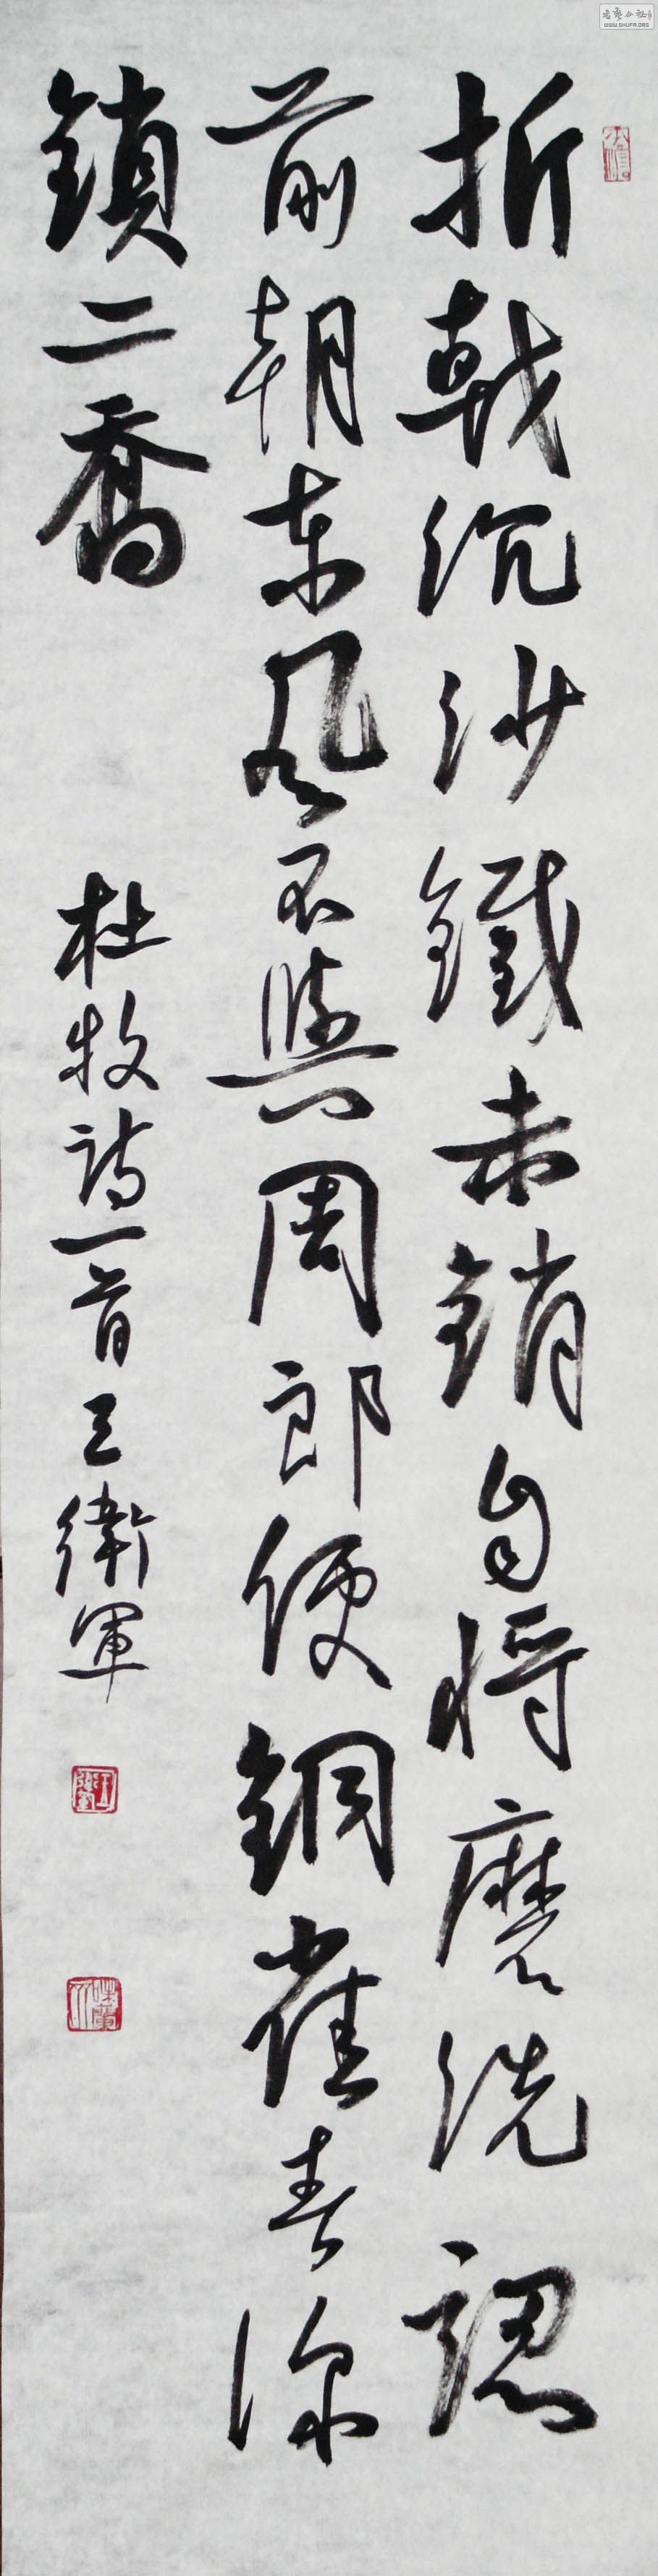 折戟沉沙鐵未銷自將磨洗認
前朝東風不與周郎便銅雀春深
鎖二喬
杜牧詩一首王衛軍
WWW.SHUFA.ORG